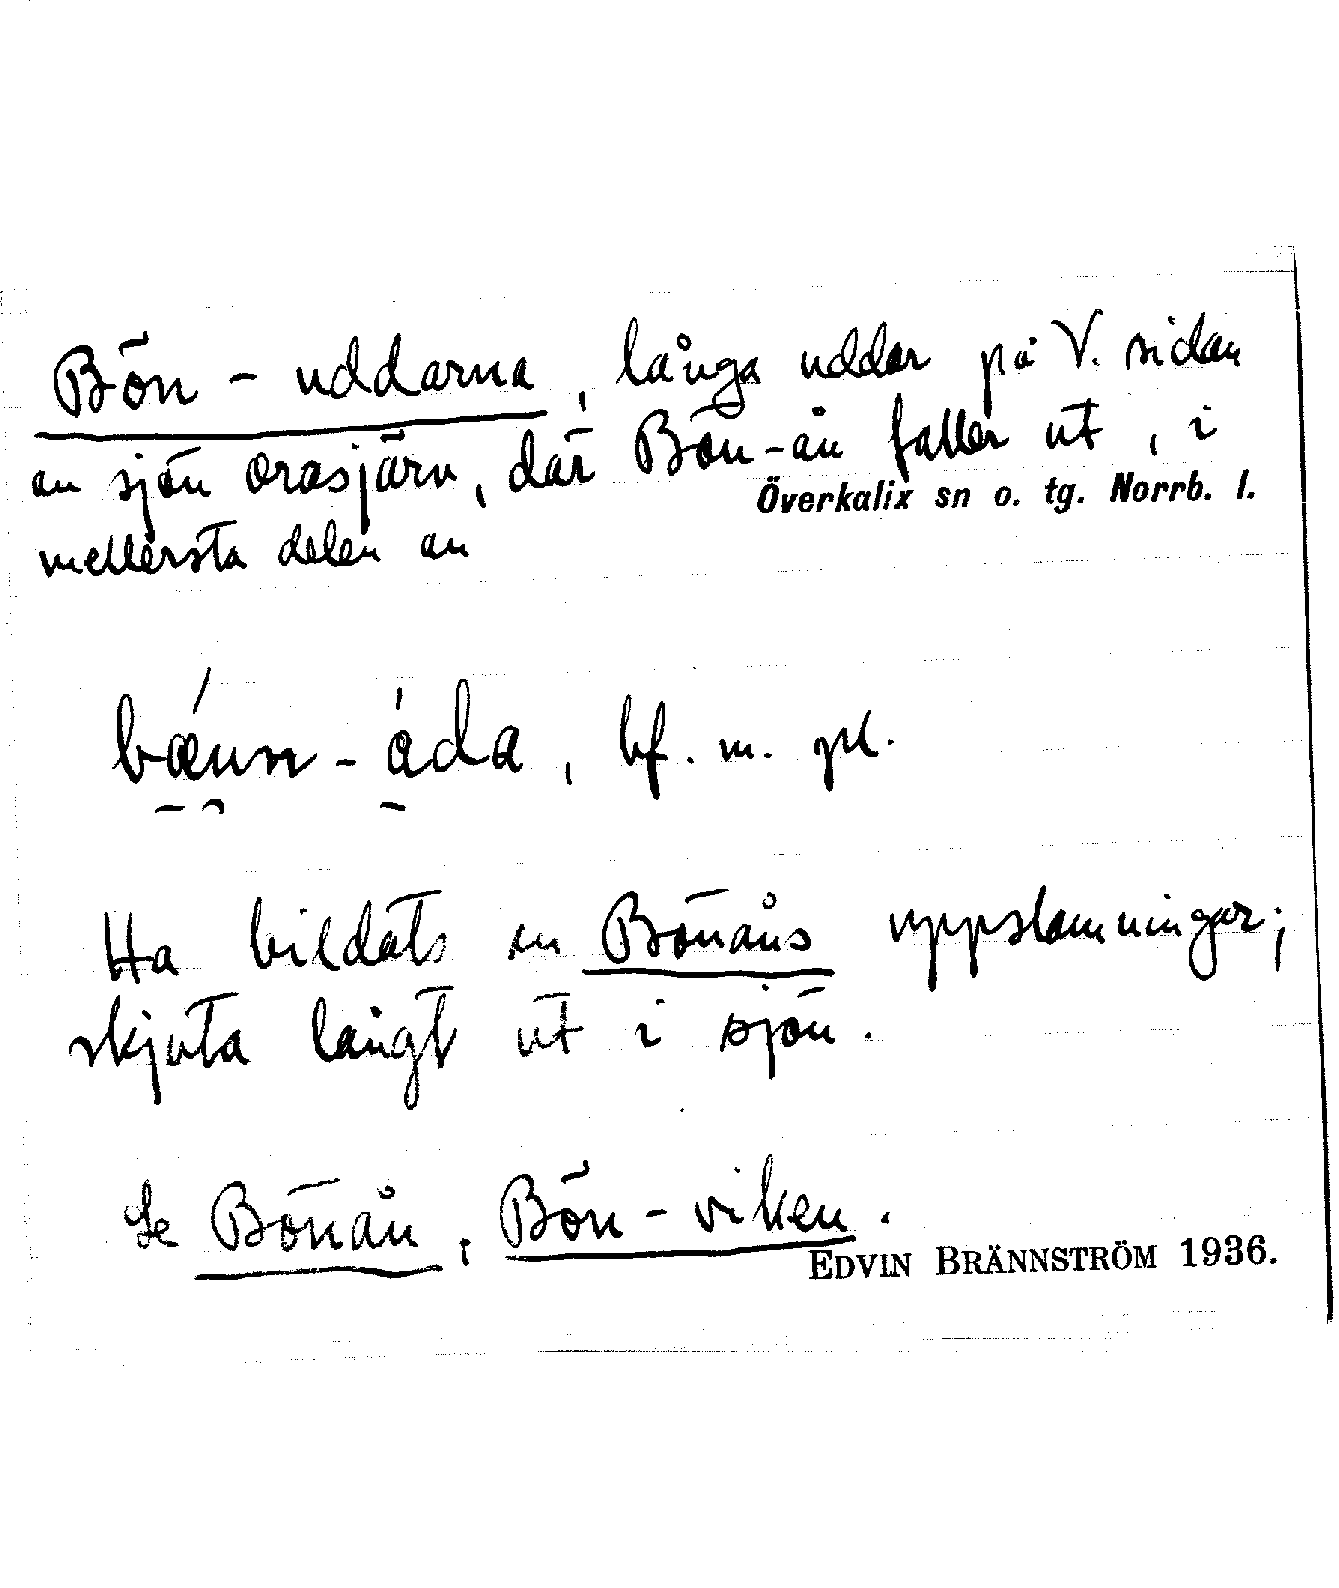 Bön-uddarna, långa uddar på V. sidan
av sjön Orasjärv, där Bön-ån faller ut, i
Överkalix sn o. tg. Norrb. l.
mellersta delen av
bf. m. pl.
Ha bildats av Bönåns uppslamningar;
skjuta långt ut i sjön.
Se Bönån, Bön-viken.
EDVIN BRÄNNSTRÖM 1936.